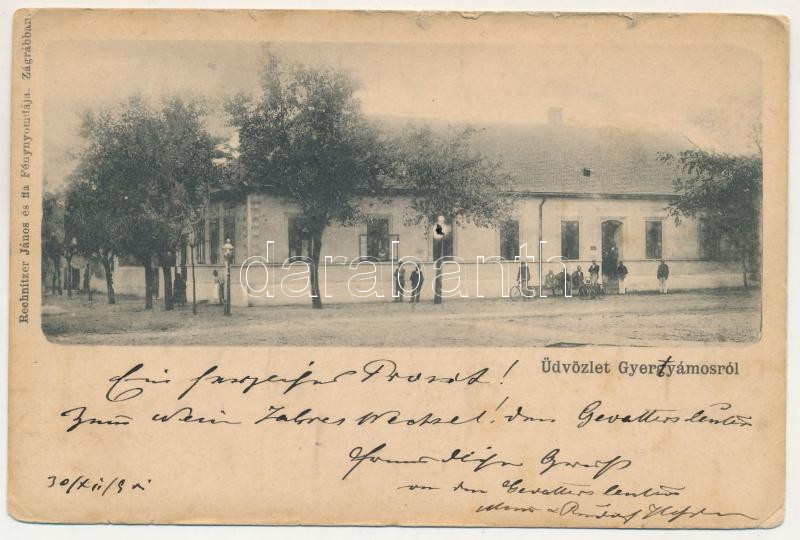 Rechnitzer János és fia Fénynyomdája. Zágrábban.
darabanth
Üdvözlet Gyertyámosról
Ein herzliches Prosit!
Zum Jahres Wechsel! den Gevattersleuten
Gruß
von den Gevattersleuten
Rudolf
30/XII/